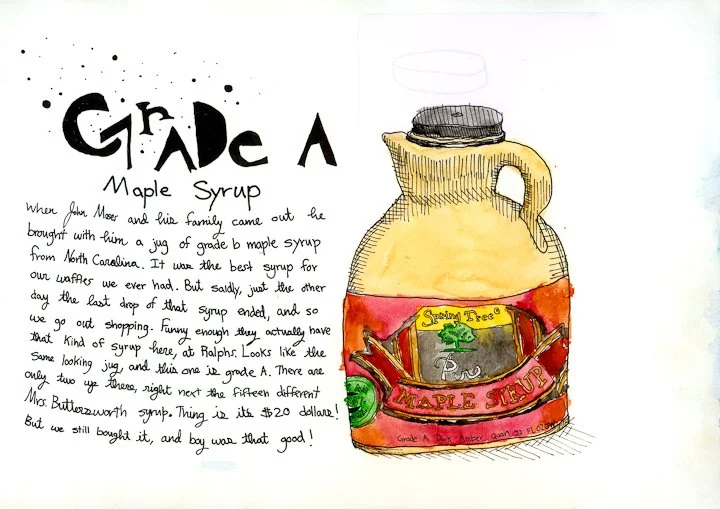 GraDe A
Maple Syrup
When John Moser and his family came out he
brought with him a jug of grade b maple syrup
from North Carolina. It was the best syrup for
our waffles we ever had. But saidly, just the other
day the last drop of that syrup ended, and so
we go out shopping. Funny enough they actually have
that kind of syrup here, at Ralphs. Looks like the
same looking jug, and this one is grade A. There are
only two up there, right next the fifteen different
Mrs. Buttersworth syrup. Thing is its $20 dollars!
But we still bought it, and boy was that good!
Spring Tree
Pure
MAPLE SIRUP
Grade A Dark Amber 32 FL OZ